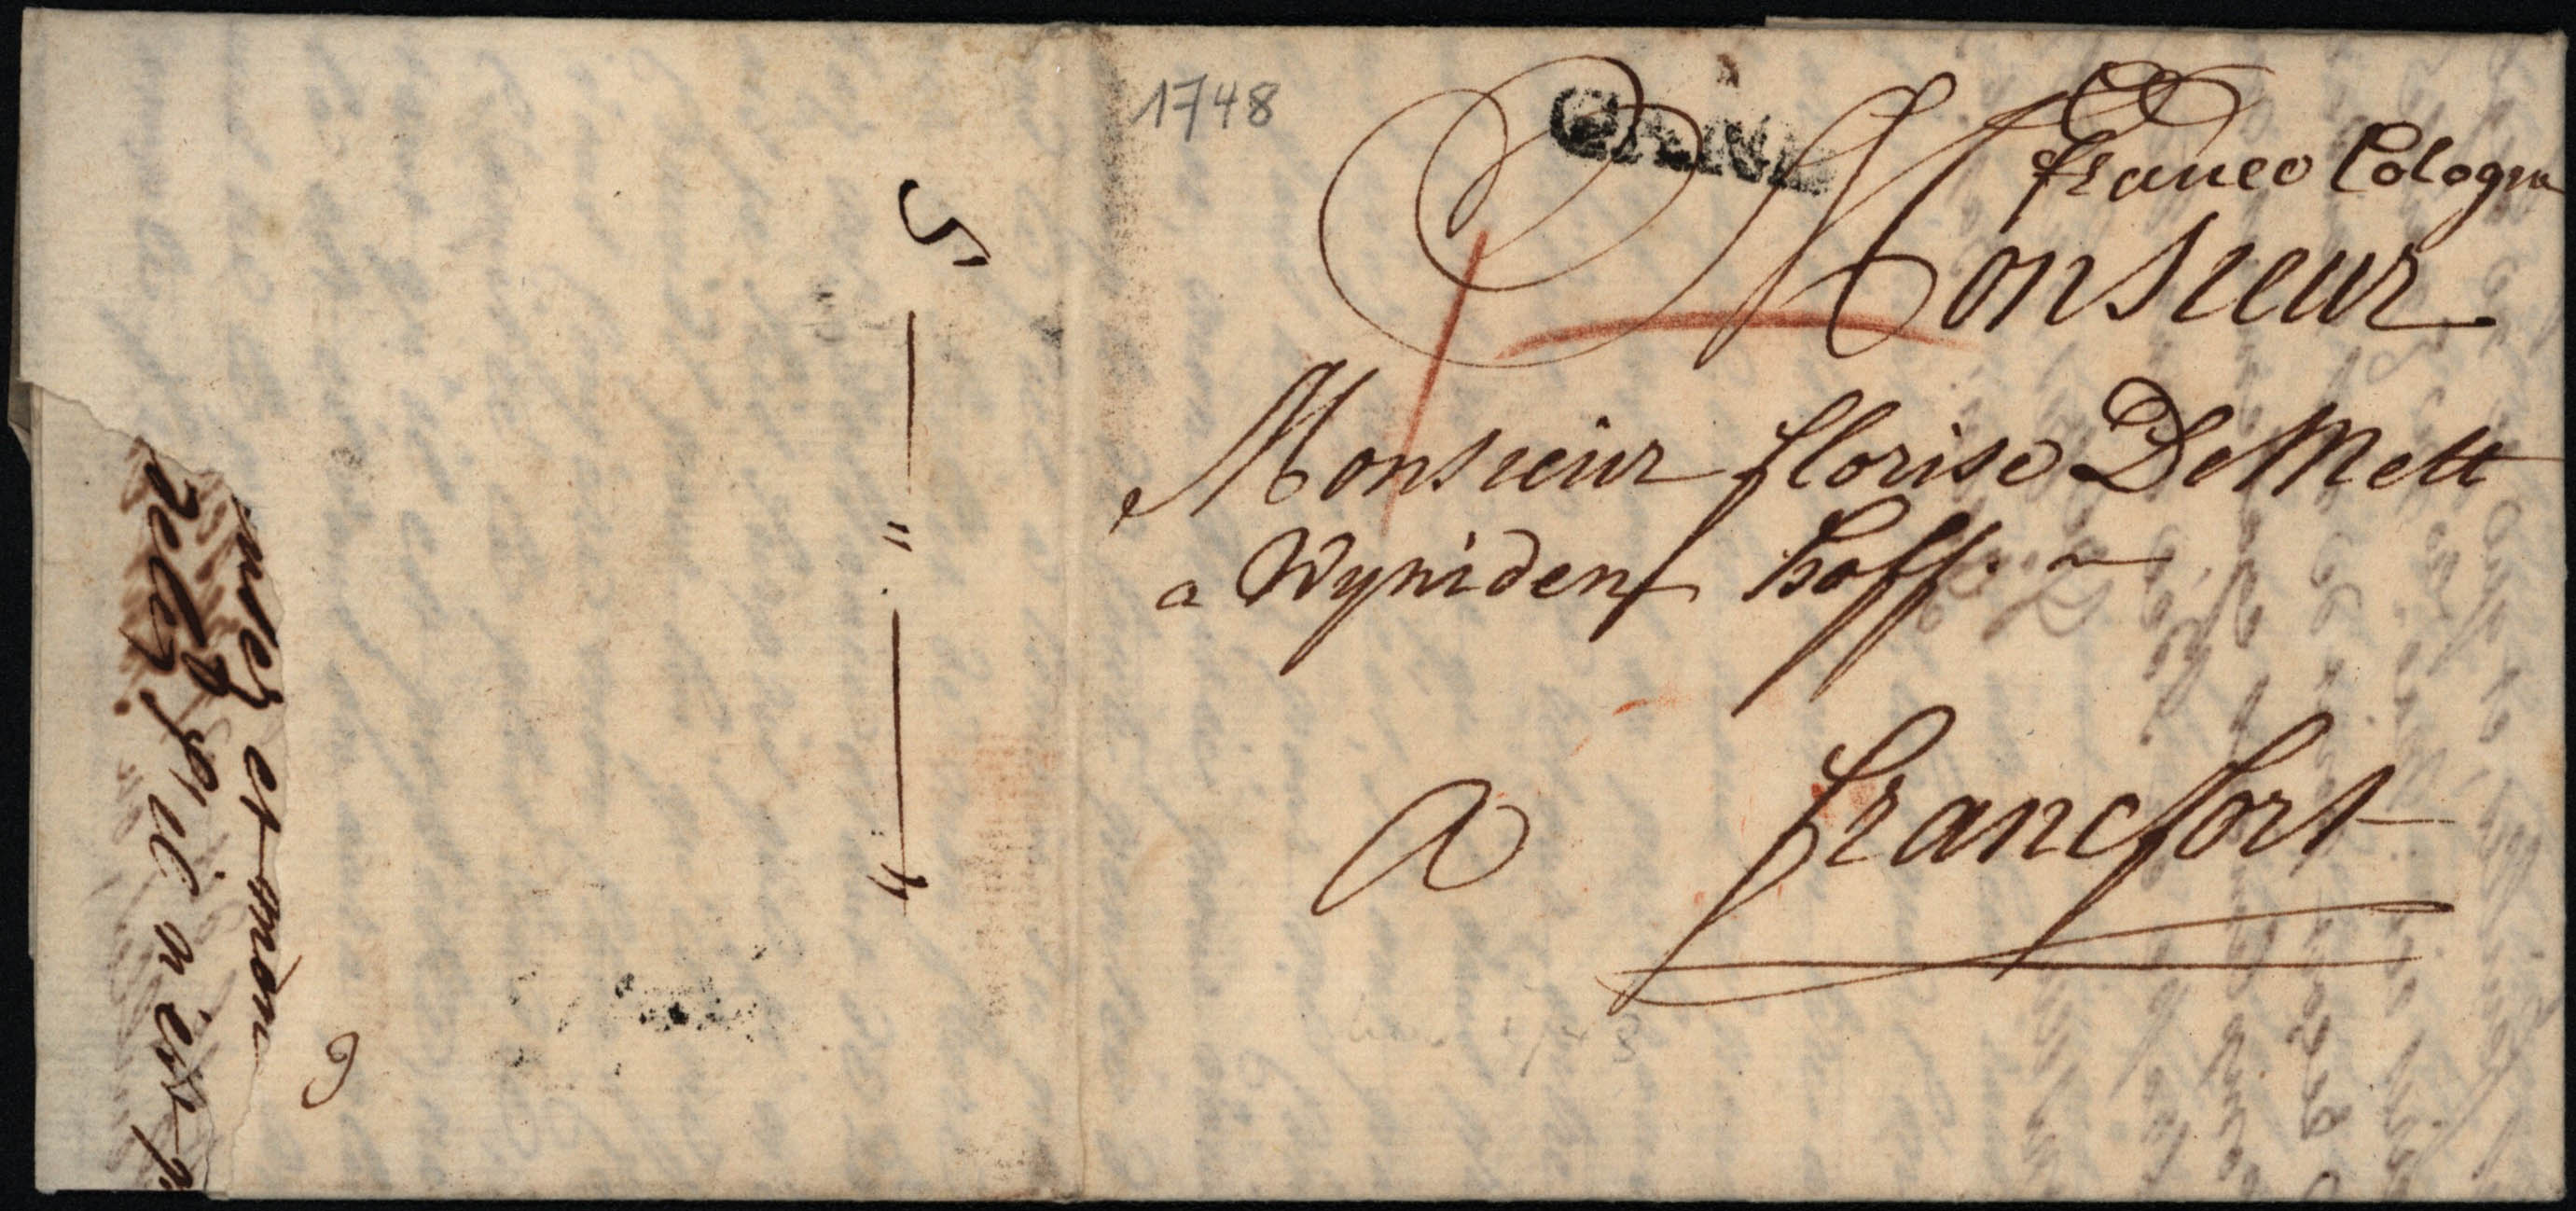 1748
GAND
franco Cologne
Monsieur
Monsieur florisc DeMett
a Wyniden hoff.
A francfort
et mon